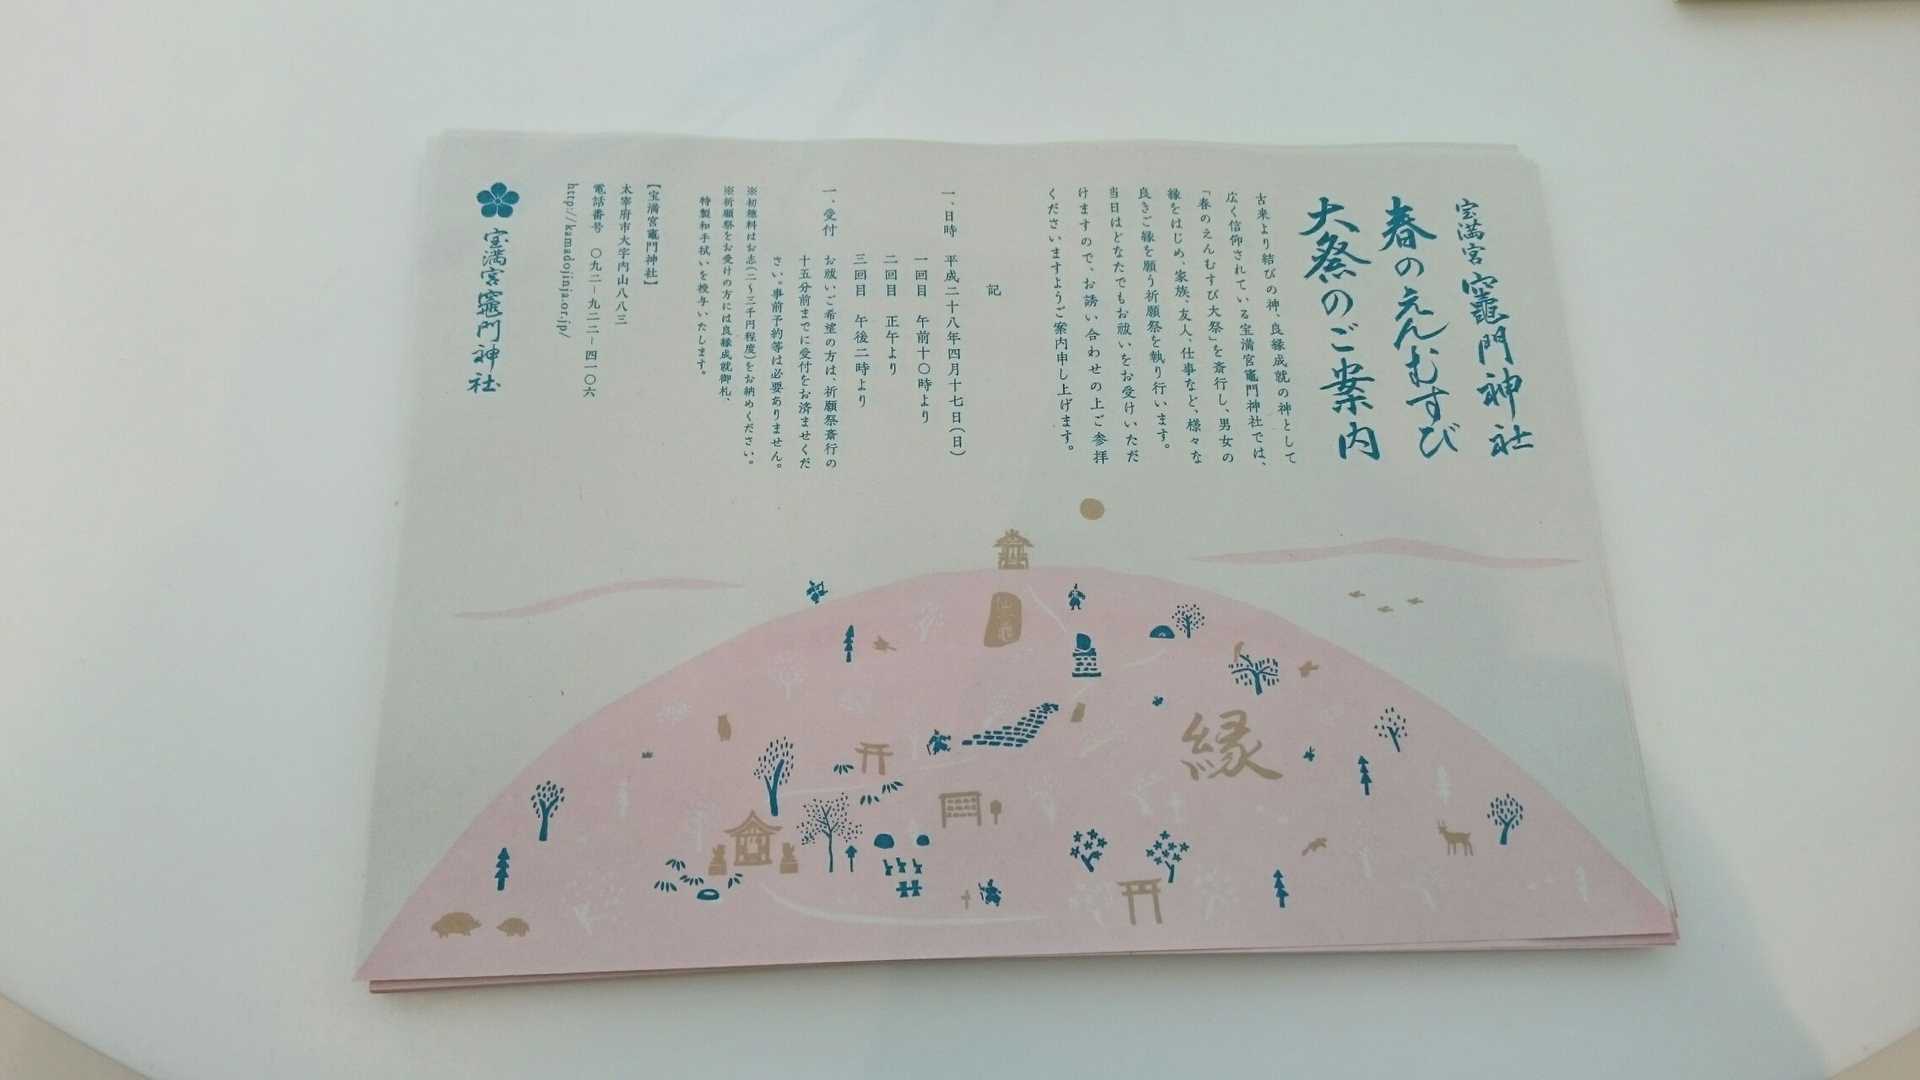 宝満宮 竈門神社
春のえんむすび
大祭のご案内
古来より結びの神、良縁成就の神として
広く信仰されている宝満宮竈門神社では、
「春のえんむすび大祭」を斎行し、男女の
縁をはじめ、家族、友人、仕事など、様々な
良きご縁を願う祈願祭を執り行います。
当日はどなたでもお祓いをお受けいただ
けますので、お誘い合わせの上ご参拝
くださいますようご案内申し上げます。
記
一、日時 平成二十八年四月十七日(日)
一回目 午前十〇時より
二回目 正午より
三回目 午後二時より
一、受付 お祓いご希望の方は、祈願祭斎行の
十五分前までに受付をお済ませくだ
さい。事前予約等は必要ありません。
※初穂料はお志(二〜三千円程度)をお納めください。
※祈願祭をお受けの方には良縁成就御札、
特製和手拭いを授与いたします。
【宝満宮竈門神社】
太宰府市大字内山八八三
電話番号 〇九二-九二二-四一〇六
http://kamadojinja.or.jp/
宝満宮竈門神社
縁